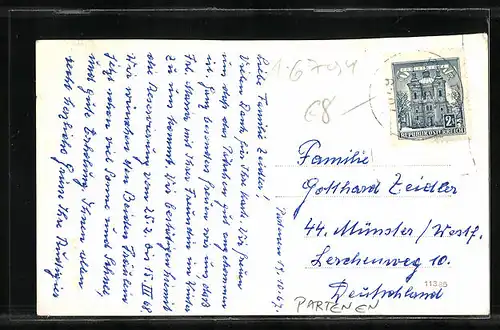 Liebe Familie Zeidler!
Vielen Dank für Ihre Karte. Wir freuen
uns, daß das gut angekommen
ist. Ganz besonders freuen wir uns daß
Frl. Maria mit Ihrer Freundin im Winter
zu uns kommt. Wir bestätigen hiermit
die Reservierung vom 25.2. bis 17. III 68.
Wir wünschen den Beiden Fräulein
jetzt schon viel Sonne und Schnee,
und gute Erholung. Ihnen allen
recht herzliche Grüße Ihre
Partenen 19.10.67.
1.6794
€8
REPUBLIK ÖSTERREICH
Familie
Gotthard Zeidler
44. Münster/Westf.
Lerchenweg 10.
Deutschland
11385
PARTENEN